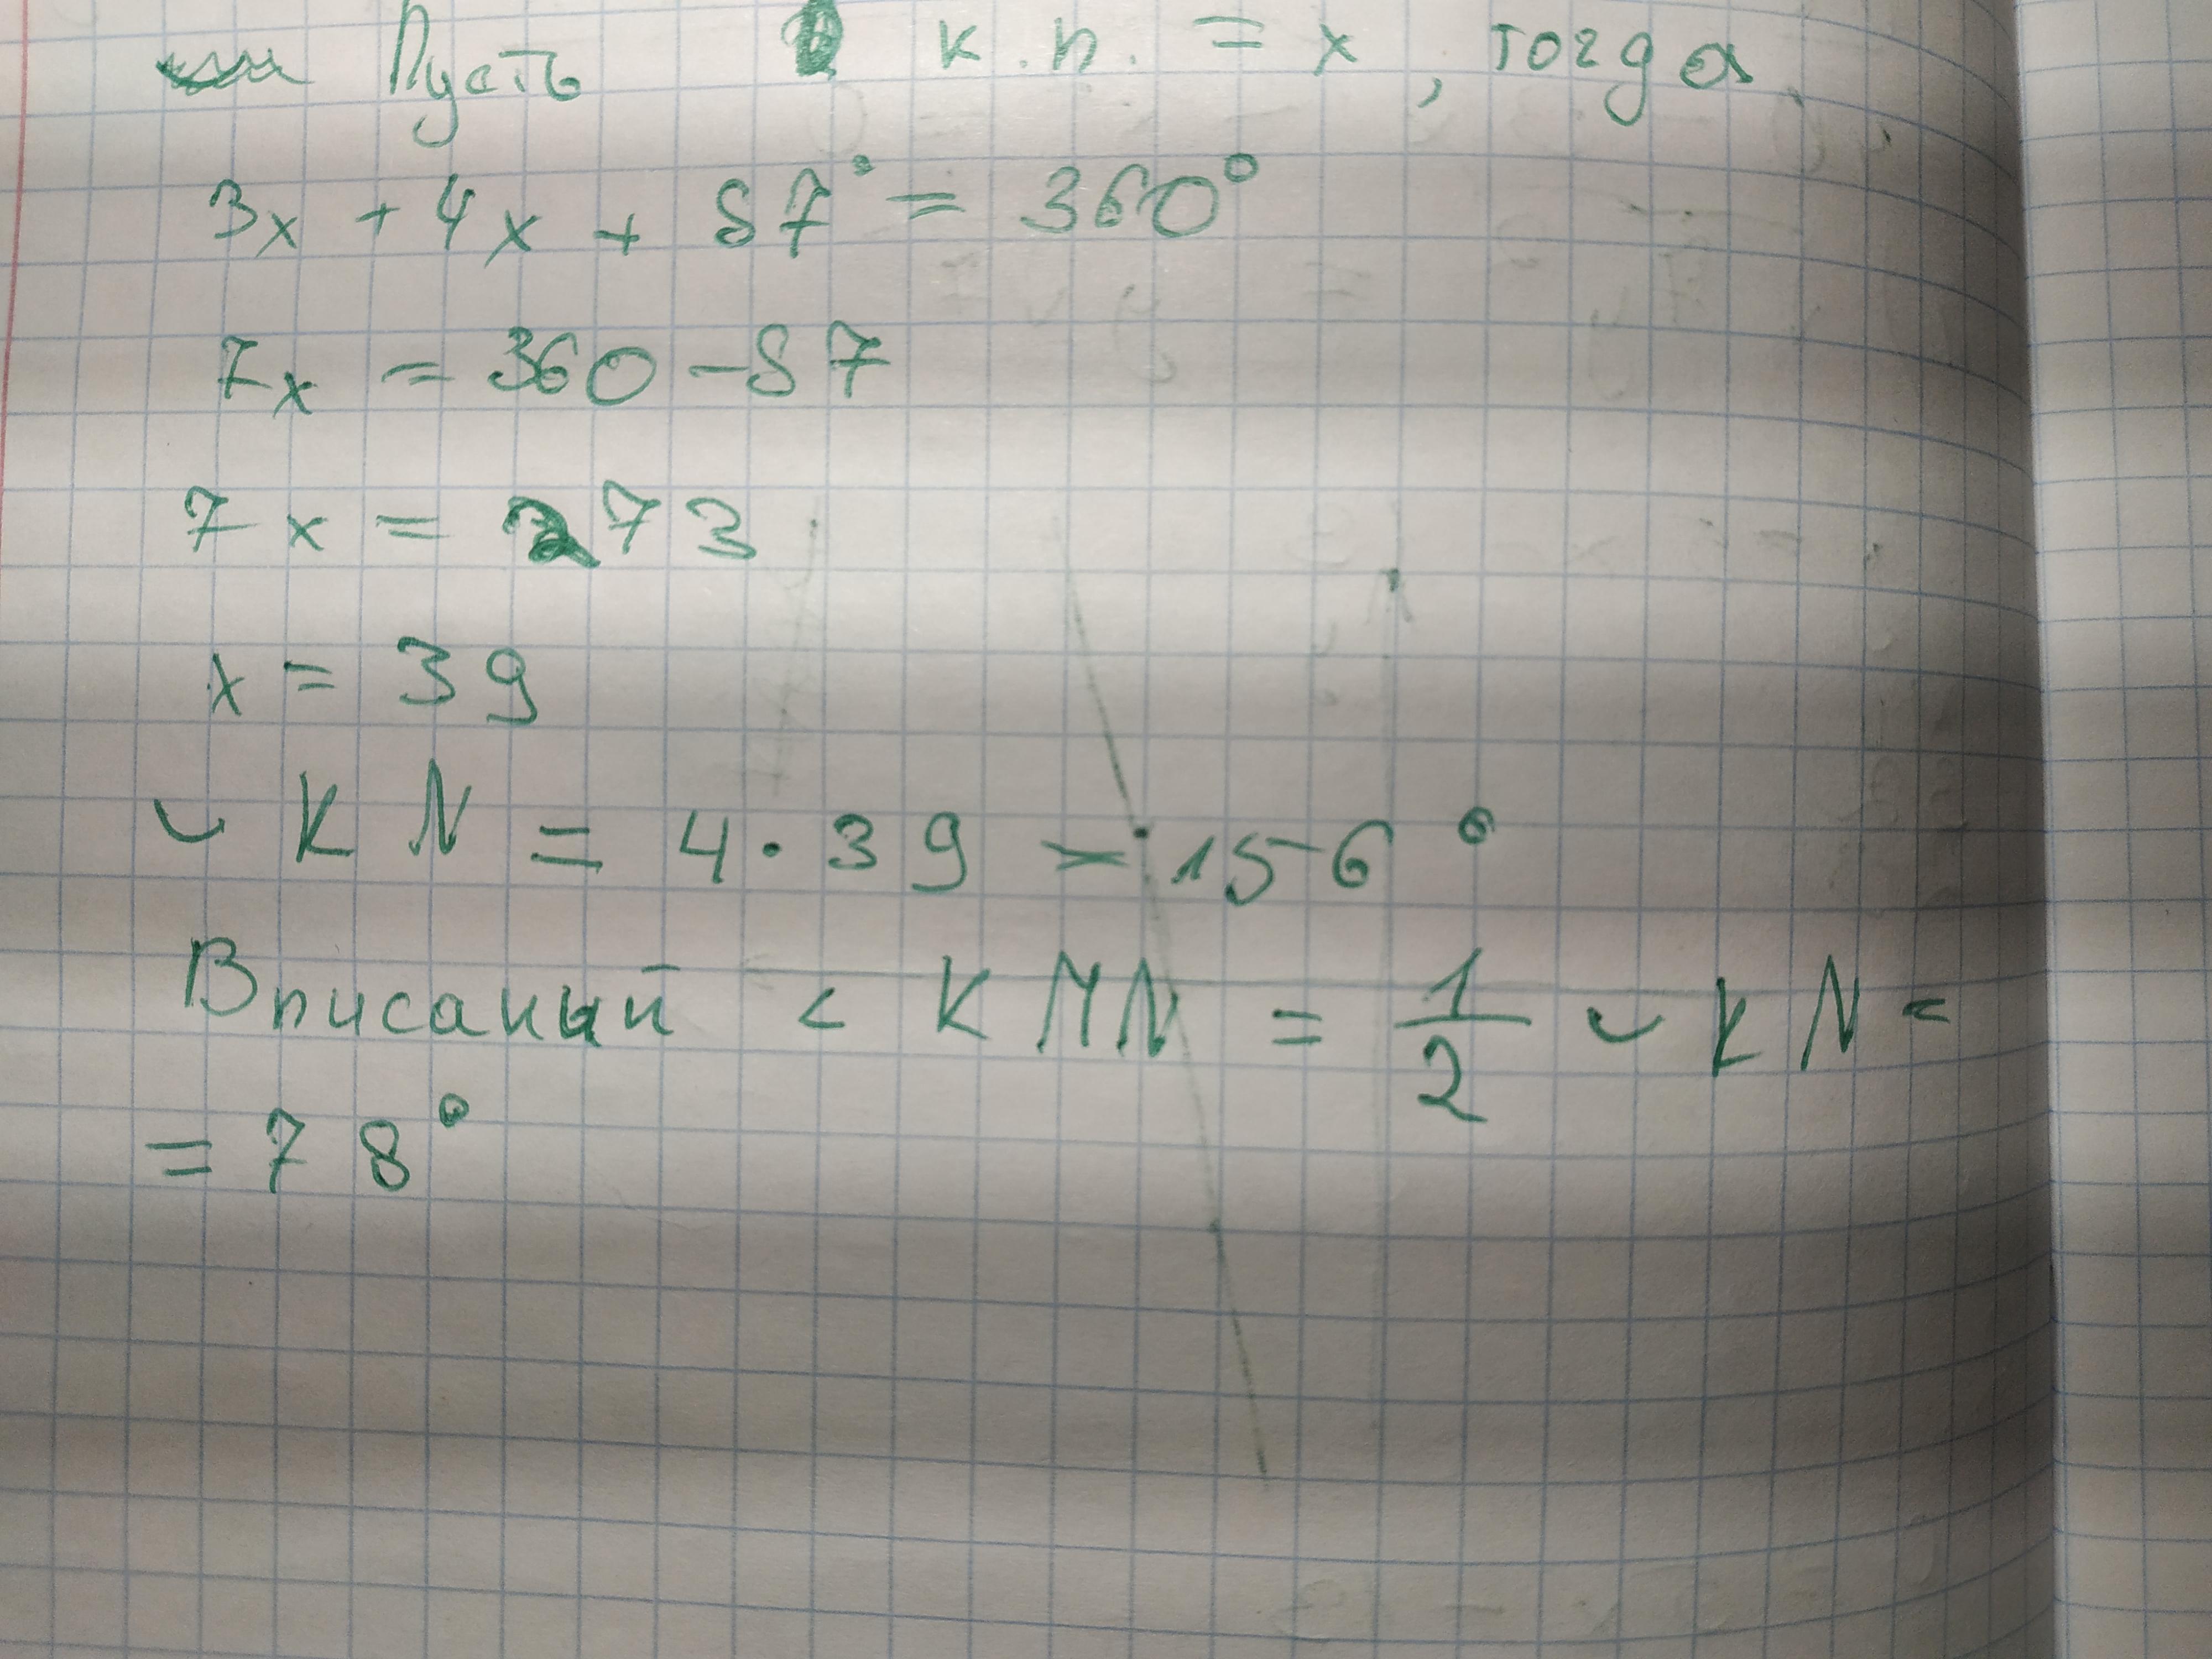 Пусть к.п. = x, тогда
3x + 4x + 87° = 360°
7x = 360 - 87
7x = 273
x = 39
◡ KN = 4 · 39 = 156°
Вписаный < KMN = 1/2 ◡ KN =
= 78°